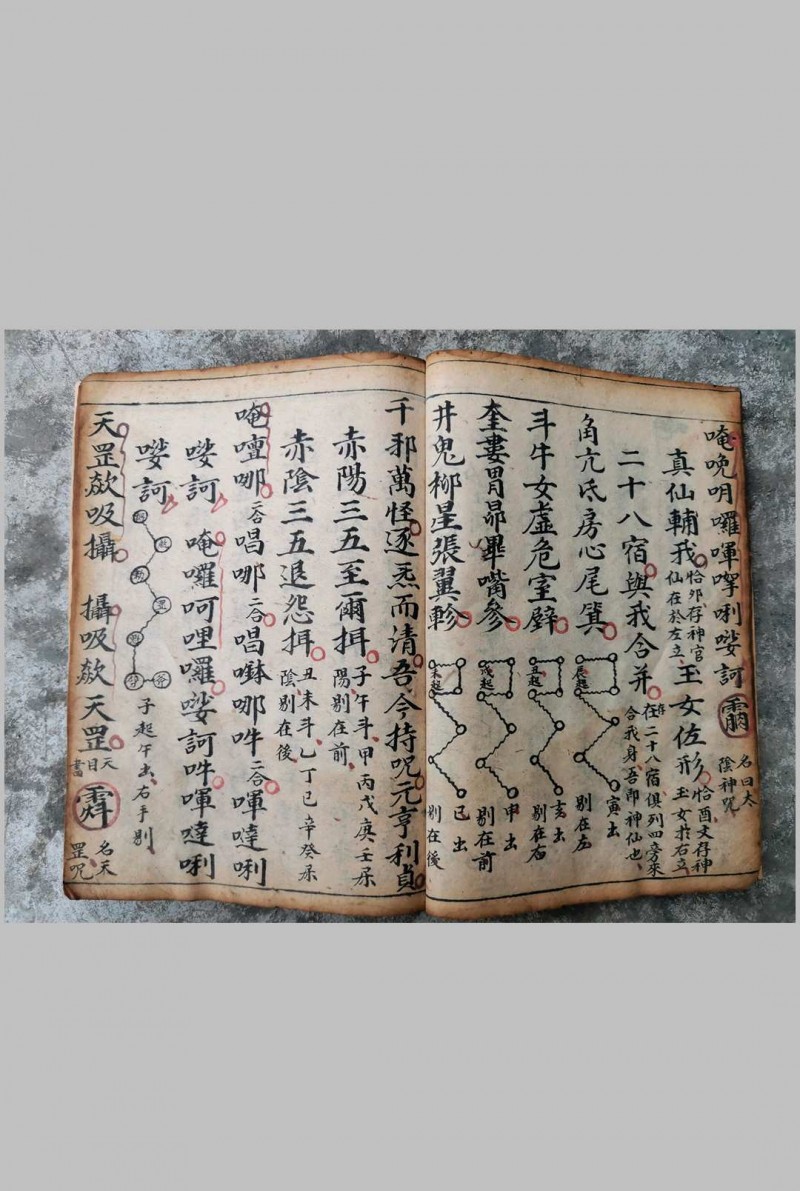 唵唍明囉㖵㗶唎娑訶 名曰太陰神咒
真仙輔我 恰邜存神官仙在於左立 玉女佐形 恰酉文存神玉女於右立
二十八宿與我合并 存在二十八宿俱列四旁來合我身吾即神仙也
角亢氐房心尾箕 辰起 寅出 剔在左
斗牛女虛危室壁 丑起 亥出 剔在右
奎婁胃昴畢嘴參 戌起 申出 剔在前
井鬼柳星張翼軫 未起 巳出 剔在後
千邪萬怪逐炁而清吾今持呪元亨利貞
赤陽三五至爾揖 子午斗甲丙戊庚壬 陽剔在前
赤陰三五退怨揖 丑未斗乙丁己辛癸 陰剔在後
唵嚪哪二合唱哪二合唱 哪吽二合㖵噠唎
娑訶 唵囉呵哩囉娑訶吽㖵噠唎
娑訶 子起午出右手剔
天罡欻吸攝 攝吸欻天罡 天目書 名天罡呪